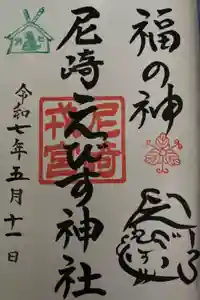 福の神
尼崎えびす神社
尼崎戎宮
令和七年五月十一日